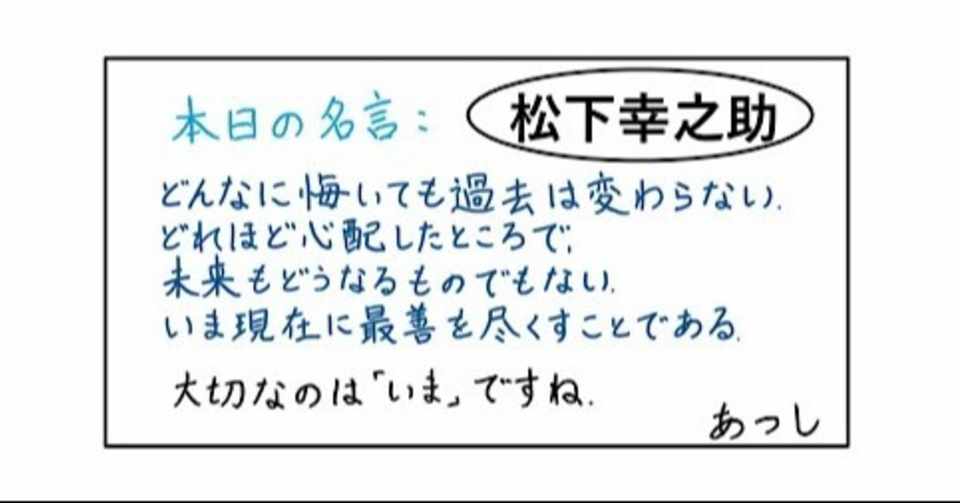 本日の名言: 松下幸之助
どんなに悔いても過去は変わらない.
どれほど心配したところで,
未来もどうなるものでもない.
いま現在に最善を尽くすことである.
大切なのは「いま」ですね.
あつし